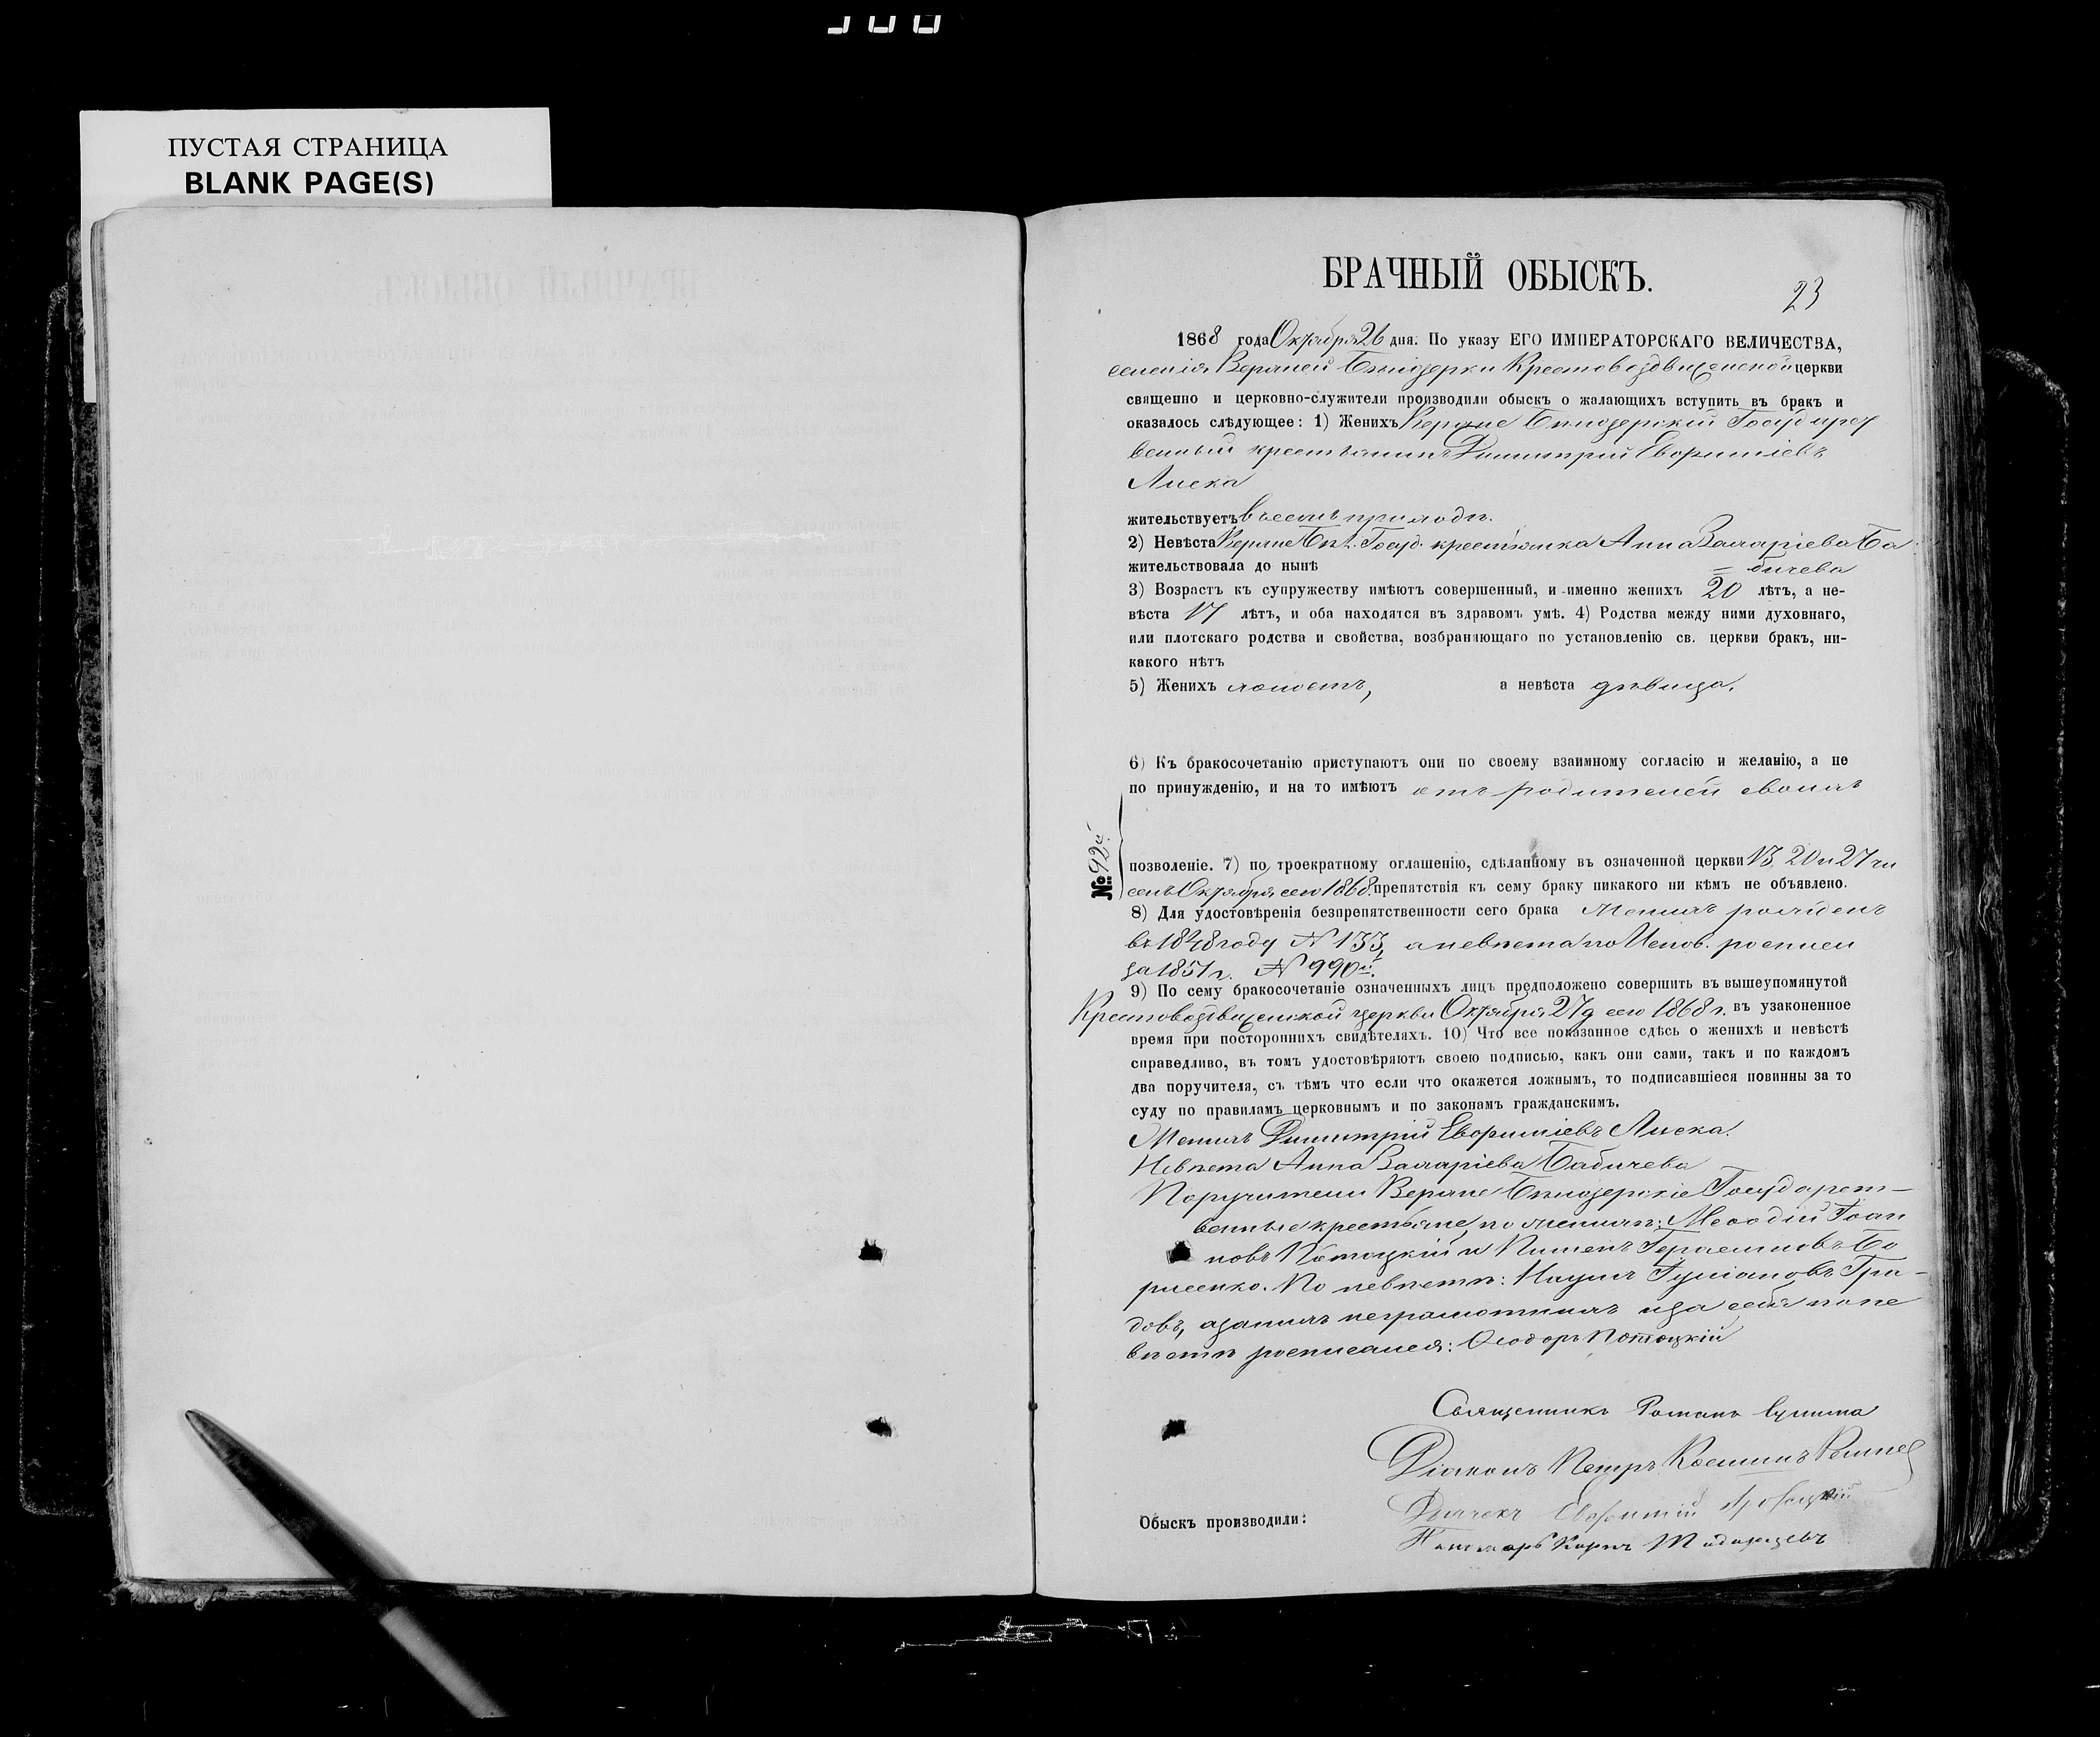 ПУСТАЯ СТРАНИЦА
BLANK PAGE(S)
БРАЧНЫЙ ОБЫСКЪ.
23
1868 года Октября 26 дня. По указу ЕГО ИМПЕРАТОРСКАГО ВЕЛИЧЕСТВА,
селенія Верхней Бѣлозерки Крестовоздвиженской церкви
священно и церковно-служители производили обыскъ о жалающихъ вступить въ бракъ и
оказалось слѣдующее: 1) Женихъ Верхне Бѣлозерскій Государст
венный крестьянинъ Димитрій Евфиміевъ
Лиска
жительствуетъ въ семъ приходѣ.
2) Невѣста Верхне Бѣл. Госуд. крестьянка Анна Захаріева Ба
жительствовала до нынѣ
= бичева
3) Возрастъ къ супружеству имѣютъ совершенный, и именно женихъ 20 лѣтъ, а не-
вѣста 17 лѣтъ, и оба находятся въ здравомъ умѣ. 4) Родства между ними духовнаго,
или плотскаго родства и свойства, возбраняющаго по установленію св. церкви бракъ, ни-
какого нѣтъ
5) Женихъ холостъ, а невѣста дѣвица.
6) Къ бракосочетанію приступаютъ они по своему взаимному согласію и желанію, а не
по принужденію, и на то имѣютъ отъ родителей своихъ
№ 92й.
позволеніе. 7) по троекратному оглашенію, сдѣланному въ означенной церкви 13, 20 и 27 чи
селъ Октября сего 1868. препятствія къ сему браку никакого ни кѣмъ не объявлено.
8) Для удостовѣренія безпрепятственности сего брака Женихъ рожденъ
въ 1848 году № 133, а невѣста по Испов. росписи
за 1851 г. № 990й.
9) По сему бракосочетаніе означенныхъ лицъ предположено совершить въ вышеупомянутой
Крестовоздвиженской церкви Октября 27 д сего 1868 г. въ узаконенное
время при постороннихъ свидѣтеляхъ. 10) Что все показанное сдѣсь о женихѣ и невѣстѣ
справедливо, въ томъ удостовѣряютъ своею подписью, какъ они сами, такъ и по каждомъ
два поручителя, съ тѣмъ что если что окажется ложнымъ, то подписавшіеся повинны за то
суду по правиламъ церковнымъ и по законамъ гражданскимъ.
Женихъ Димитрій Евфиміевъ Лиска.
Невѣста Анна Захаріева Бабичева
Поручители Верхне Бѣлозерскіе Государст-
венные крестьяне, по женихѣ: Меѳодій Іоан
новъ Потоцкій и Пименъ Герасимовъ Бо
рисенко. По невѣстѣ: Наумъ Іуліановъ Гри-
довъ, а за нихъ неграмотныхъ и за себя по не
вѣстѣ росписался: Ѳеодоръ Потоцкій
Священникъ Романъ
Діаконъ Петръ Косьминъ
Обыскъ производили:
Дьячекъ Евфимій
Пономарь Карпъ